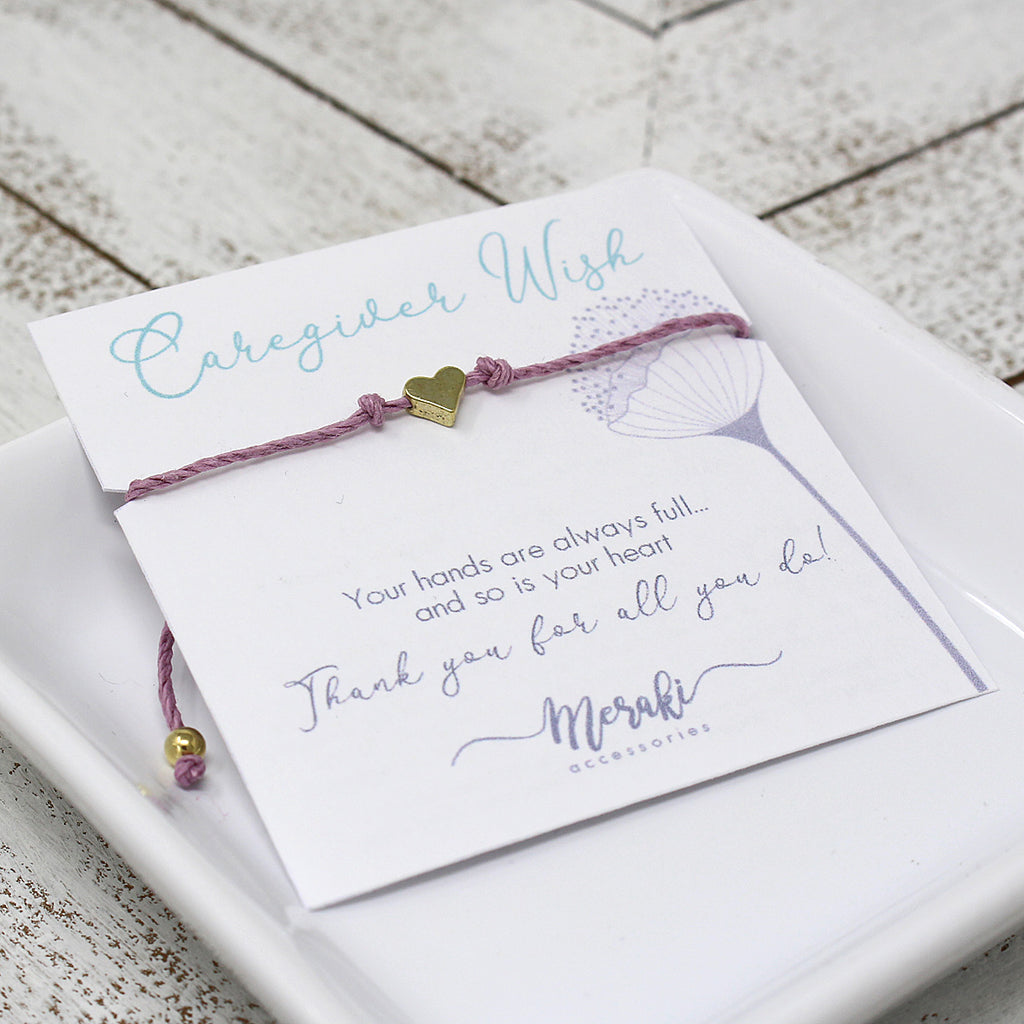 Caregiver Wish
Your hands are always full...
and so is your heart
Thank you for all you do!
Meraki
accessories